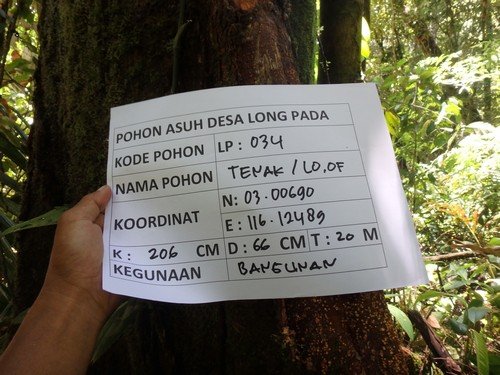 POHON ASUH DESA LONG PADA
KODE POHON LP : 034
NAMA POHON TENAK / LO, OF
KOORDINAT N: 03.00690
E: 116.12489
K : 206 CM D : 66 CM T : 20 M
KEGUNAAN BANGUNAN